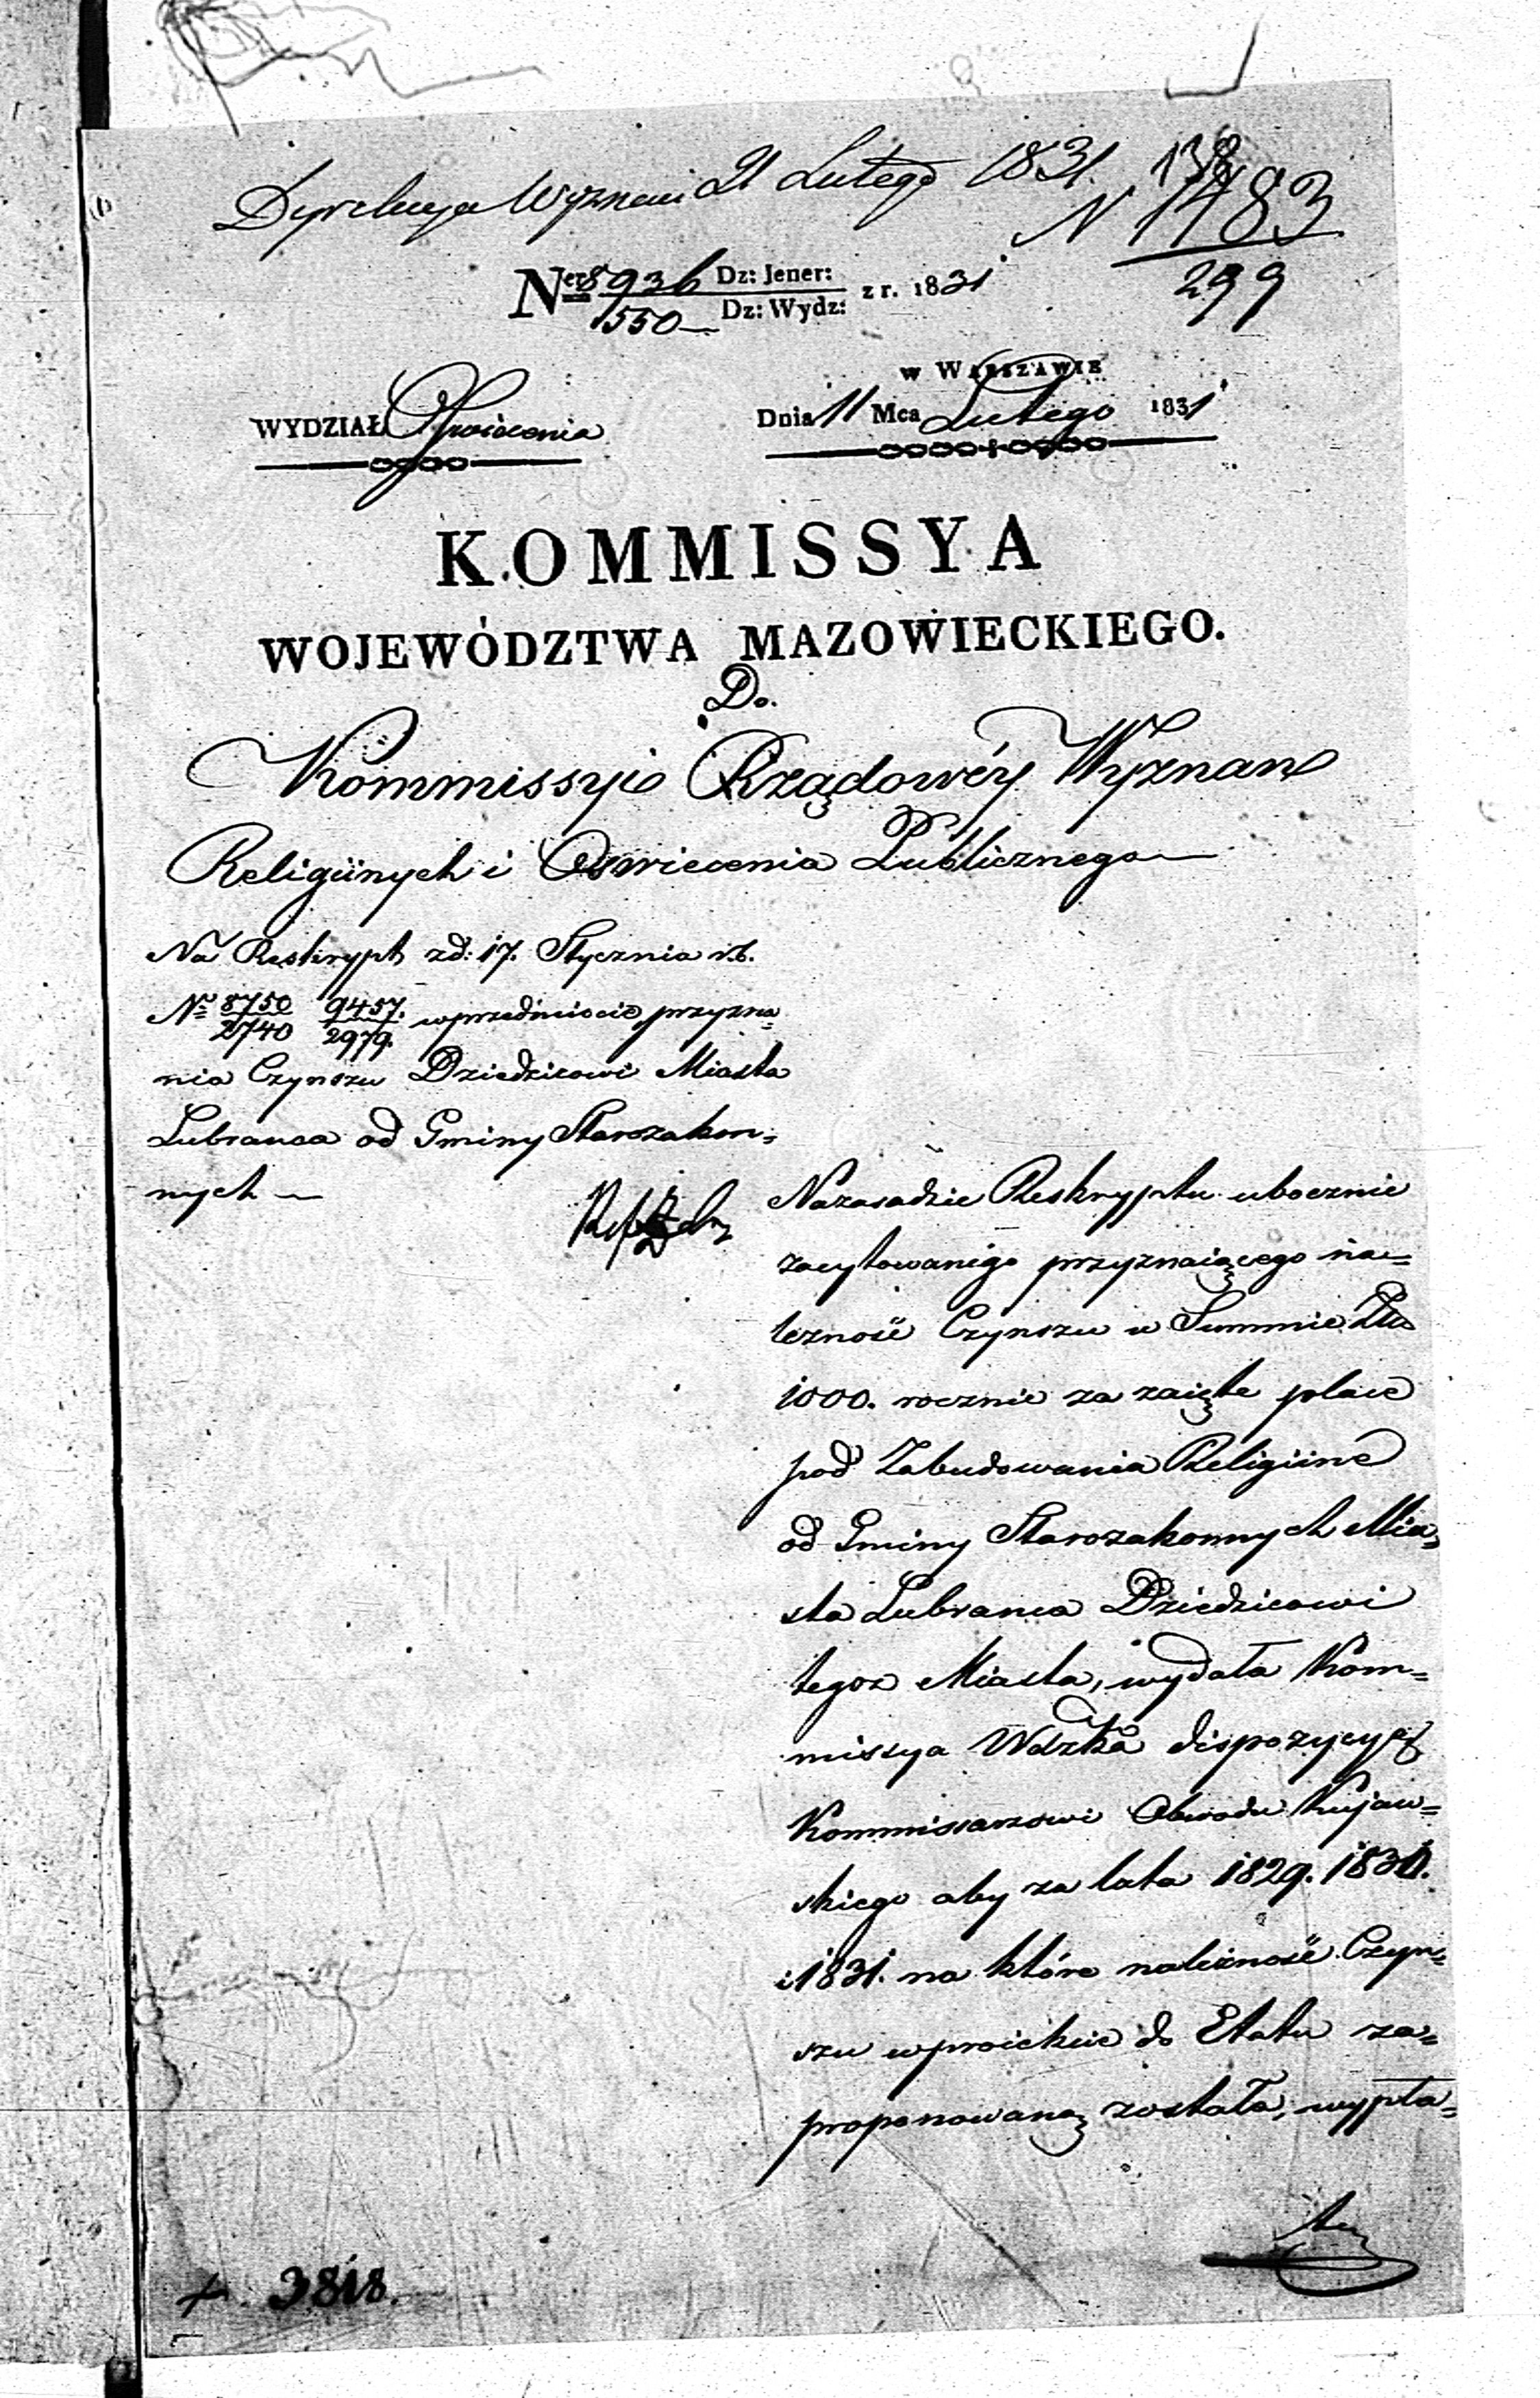 Dyrekcya Wyznań 21 Lutego 1831. 138
N 1483
299
Ner 8936 Dz: Jener: z r. 1831
550 Dz: Wydz:
w Warszawie
WYDZIAŁ Oświecenia Dnia 11 Mca Lutego 1831
KOMMISSYA
WOJEWÓDZTWA MAZOWIECKIEGO.
Do.
Kommissyi Rządowéy Wyznań
Religiinych i Oswiecenia Publicznego
Na Reskrypt zd: 17. Stycznia r.b.
Nr 8750/2740 9457/2979. wprzedmiocie przyzna=
nia Czynszu Dziedzicowi Miasta
Lubranca od Gminy Starozakon=
nych
Nazasadzie Reskryptu ubocznie
zacytowanego przyznaiącego na=
lezność Czynszu w Summie Złp
1000. rocznie za zaięte place
pod Zabudowania Religiine
od Gminy Starozakonnych Mia=
sta Lubranca Dziedzicowi
tegoz Miasta, wydała Kom=
missya Wdzka dispozycyą
Kommissarzowi Obwodu Kujaw=
skiego aby za lata 1829. 1830.
i 1831. na które należność Czyn=
szu wproiekcie do Etatu za=
proponowaną została, wypła=
3818.